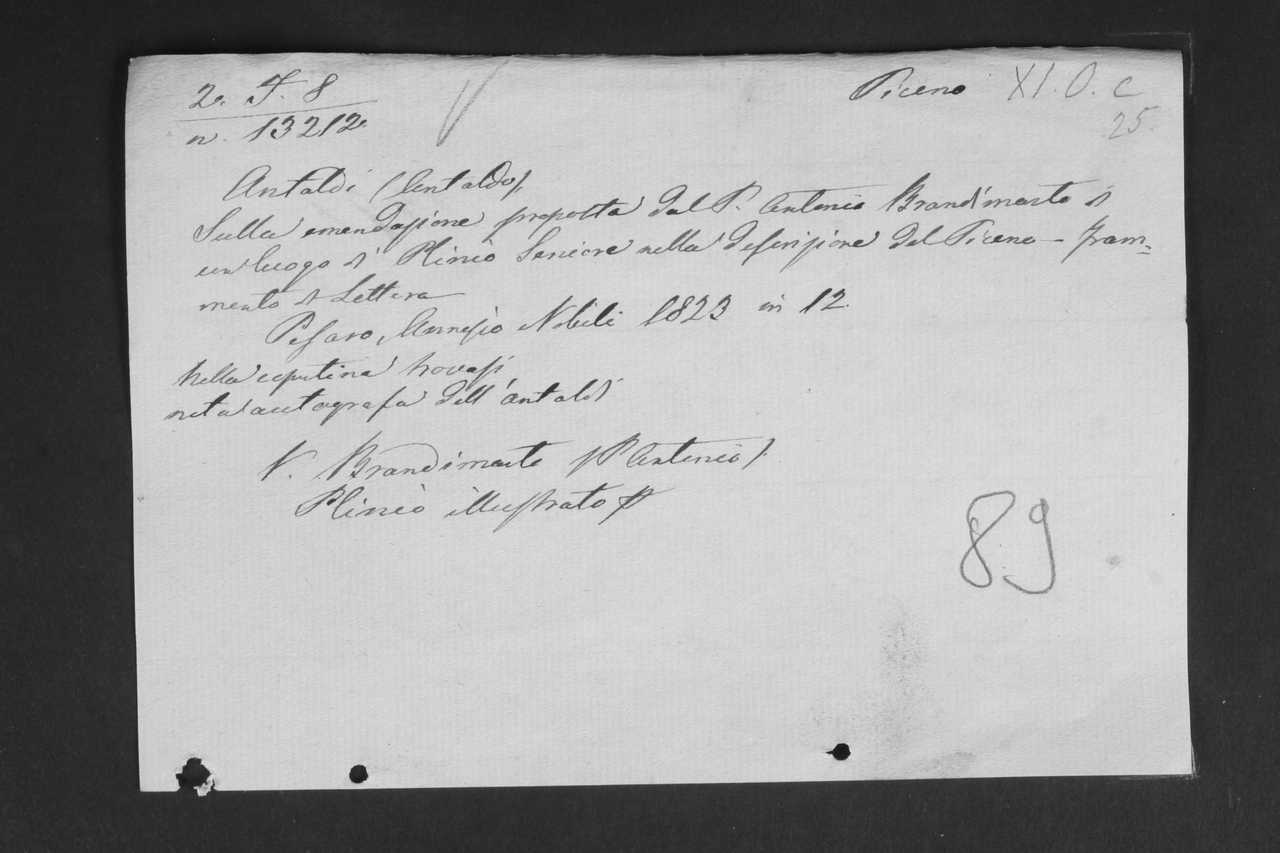 2. T. 8
n. 13212.
Piceno XI. O. c
25.
Antaldi (Antaldo),
Sulla emendazione proposta dal P. Antonio Brandimarte di
un luogo di Plinio Seniore nella descrizione del Piceno - Fram=
mento di Lettera
Pesaro, Annesio Nobili 1823 in 12.
Nella copertina trovasi
nota autografa dell'Antaldi
V. Brandimarte (P. Antonio).
Plinio illustrato
89